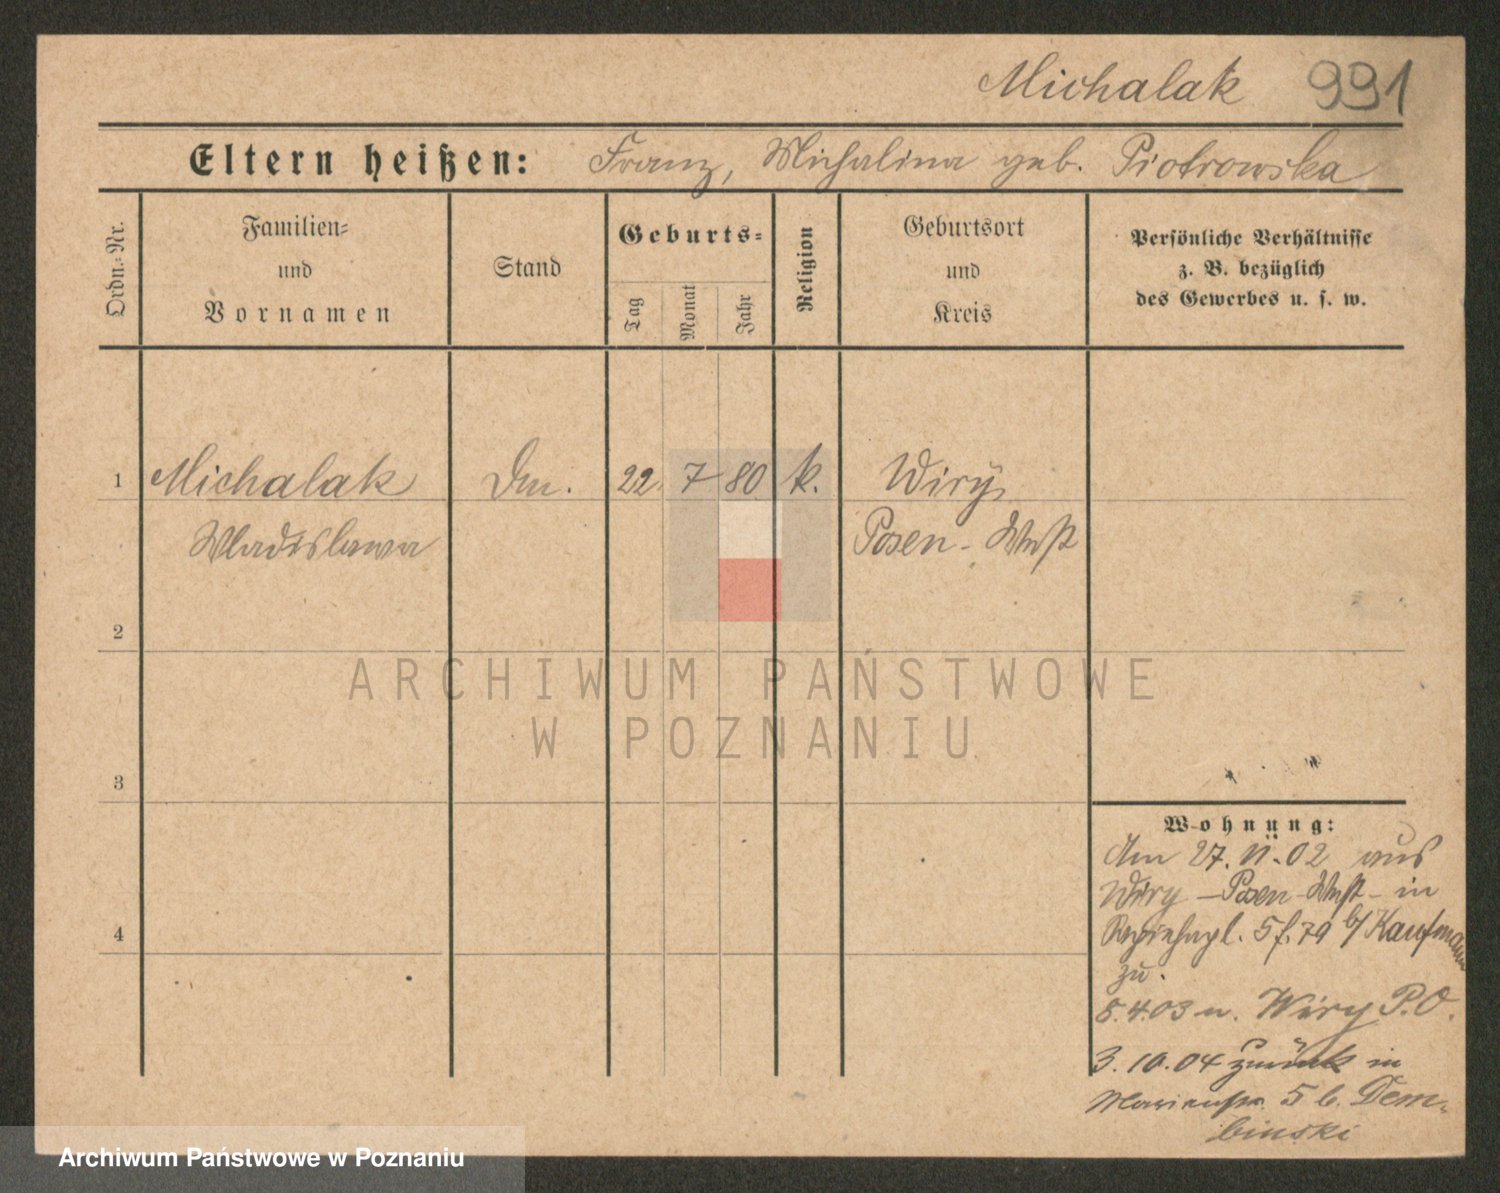 Michalak 991
Eltern heißen: Franz, Michalina geb. Piotrowska
Ordn.-Nr.
Familien-
und
Vornamen
Stand
Geburts-
Tag
Monat
Jahr
Religion
Geburtsort
und
Kreis
Persönliche Verhältnisse
z. B. bezüglich
des Gewerbes u. s. w.
1 Michalak Dm. 22. 7 80 k. Wiry,
Wladislawa Posen-West
2
3
4
Wohnung:
Am 27. 11. 02 aus
Wiry - Posen-West - in
5 f. 79 b/ Kaufmann
zu.
8.4.03 n. Wiry P.O.
3.10.04 zurück in
Marienstr. 5 b. Dem-
binski
ARCHIWUM PAŃSTWOWE
W POZNANIU
Archiwum Państwowe w Poznaniu